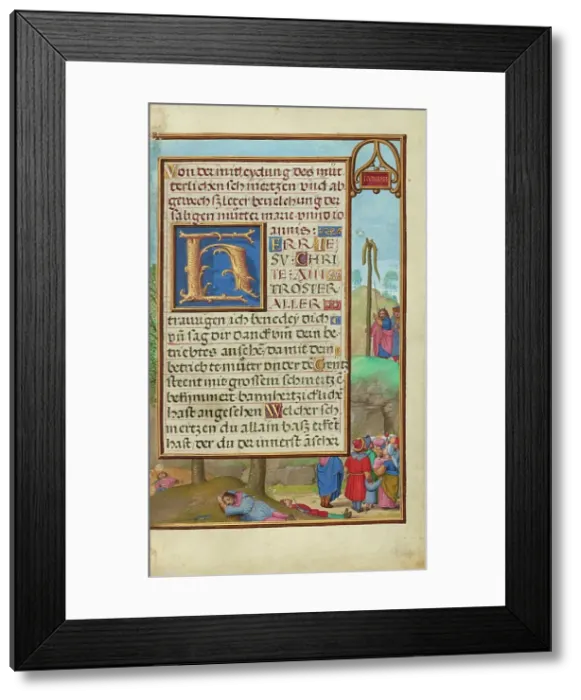 Von der mitleydung des müt
terlichen schmertzen vnd ab
gewechszleter bevelchung der
säligen müter marie vnnd io
annis:
HERR IE
SV CHRI
STE AIN
TROSTER
ALLER
traurigen ich benedey dich
vñ sag dir danck vm̃ dein be-
triebtes ansehẽ, da mit dein
betriebte müter vnder de Creutz
steent mit grossem schmertzẽ
bekimmert barmhertzicklichẽ
hast angesehen Welcher sch
mertzen du allain basz erkẽt
hast, der du der innerst ansecher